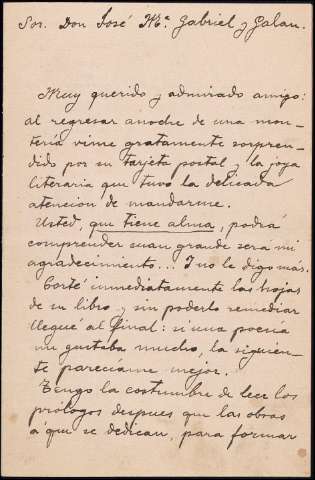 Sor. Don José Mª. Gabriel y Galan.
Muy querido y admirado amigo:
al regresar anoche de una mon-
tería vime gratamente sorpren-
dido por su tarjeta postal y la joya
literaria que tuvo la delicada
atencion de mandarme.
Usted, que tiene alma, podrá
comprender cuan grande será mi
agradecimiento... I no le digo más.
Corté inmediatamente las hojas
de su libro y sin poderlo remediar
llegué al final: si una poesía
me gustaba mucho, la siguien-
te parecíame mejor.
Tengo la costumbre de leer los
prólogos despues que las obras
á que se dedican, para formar